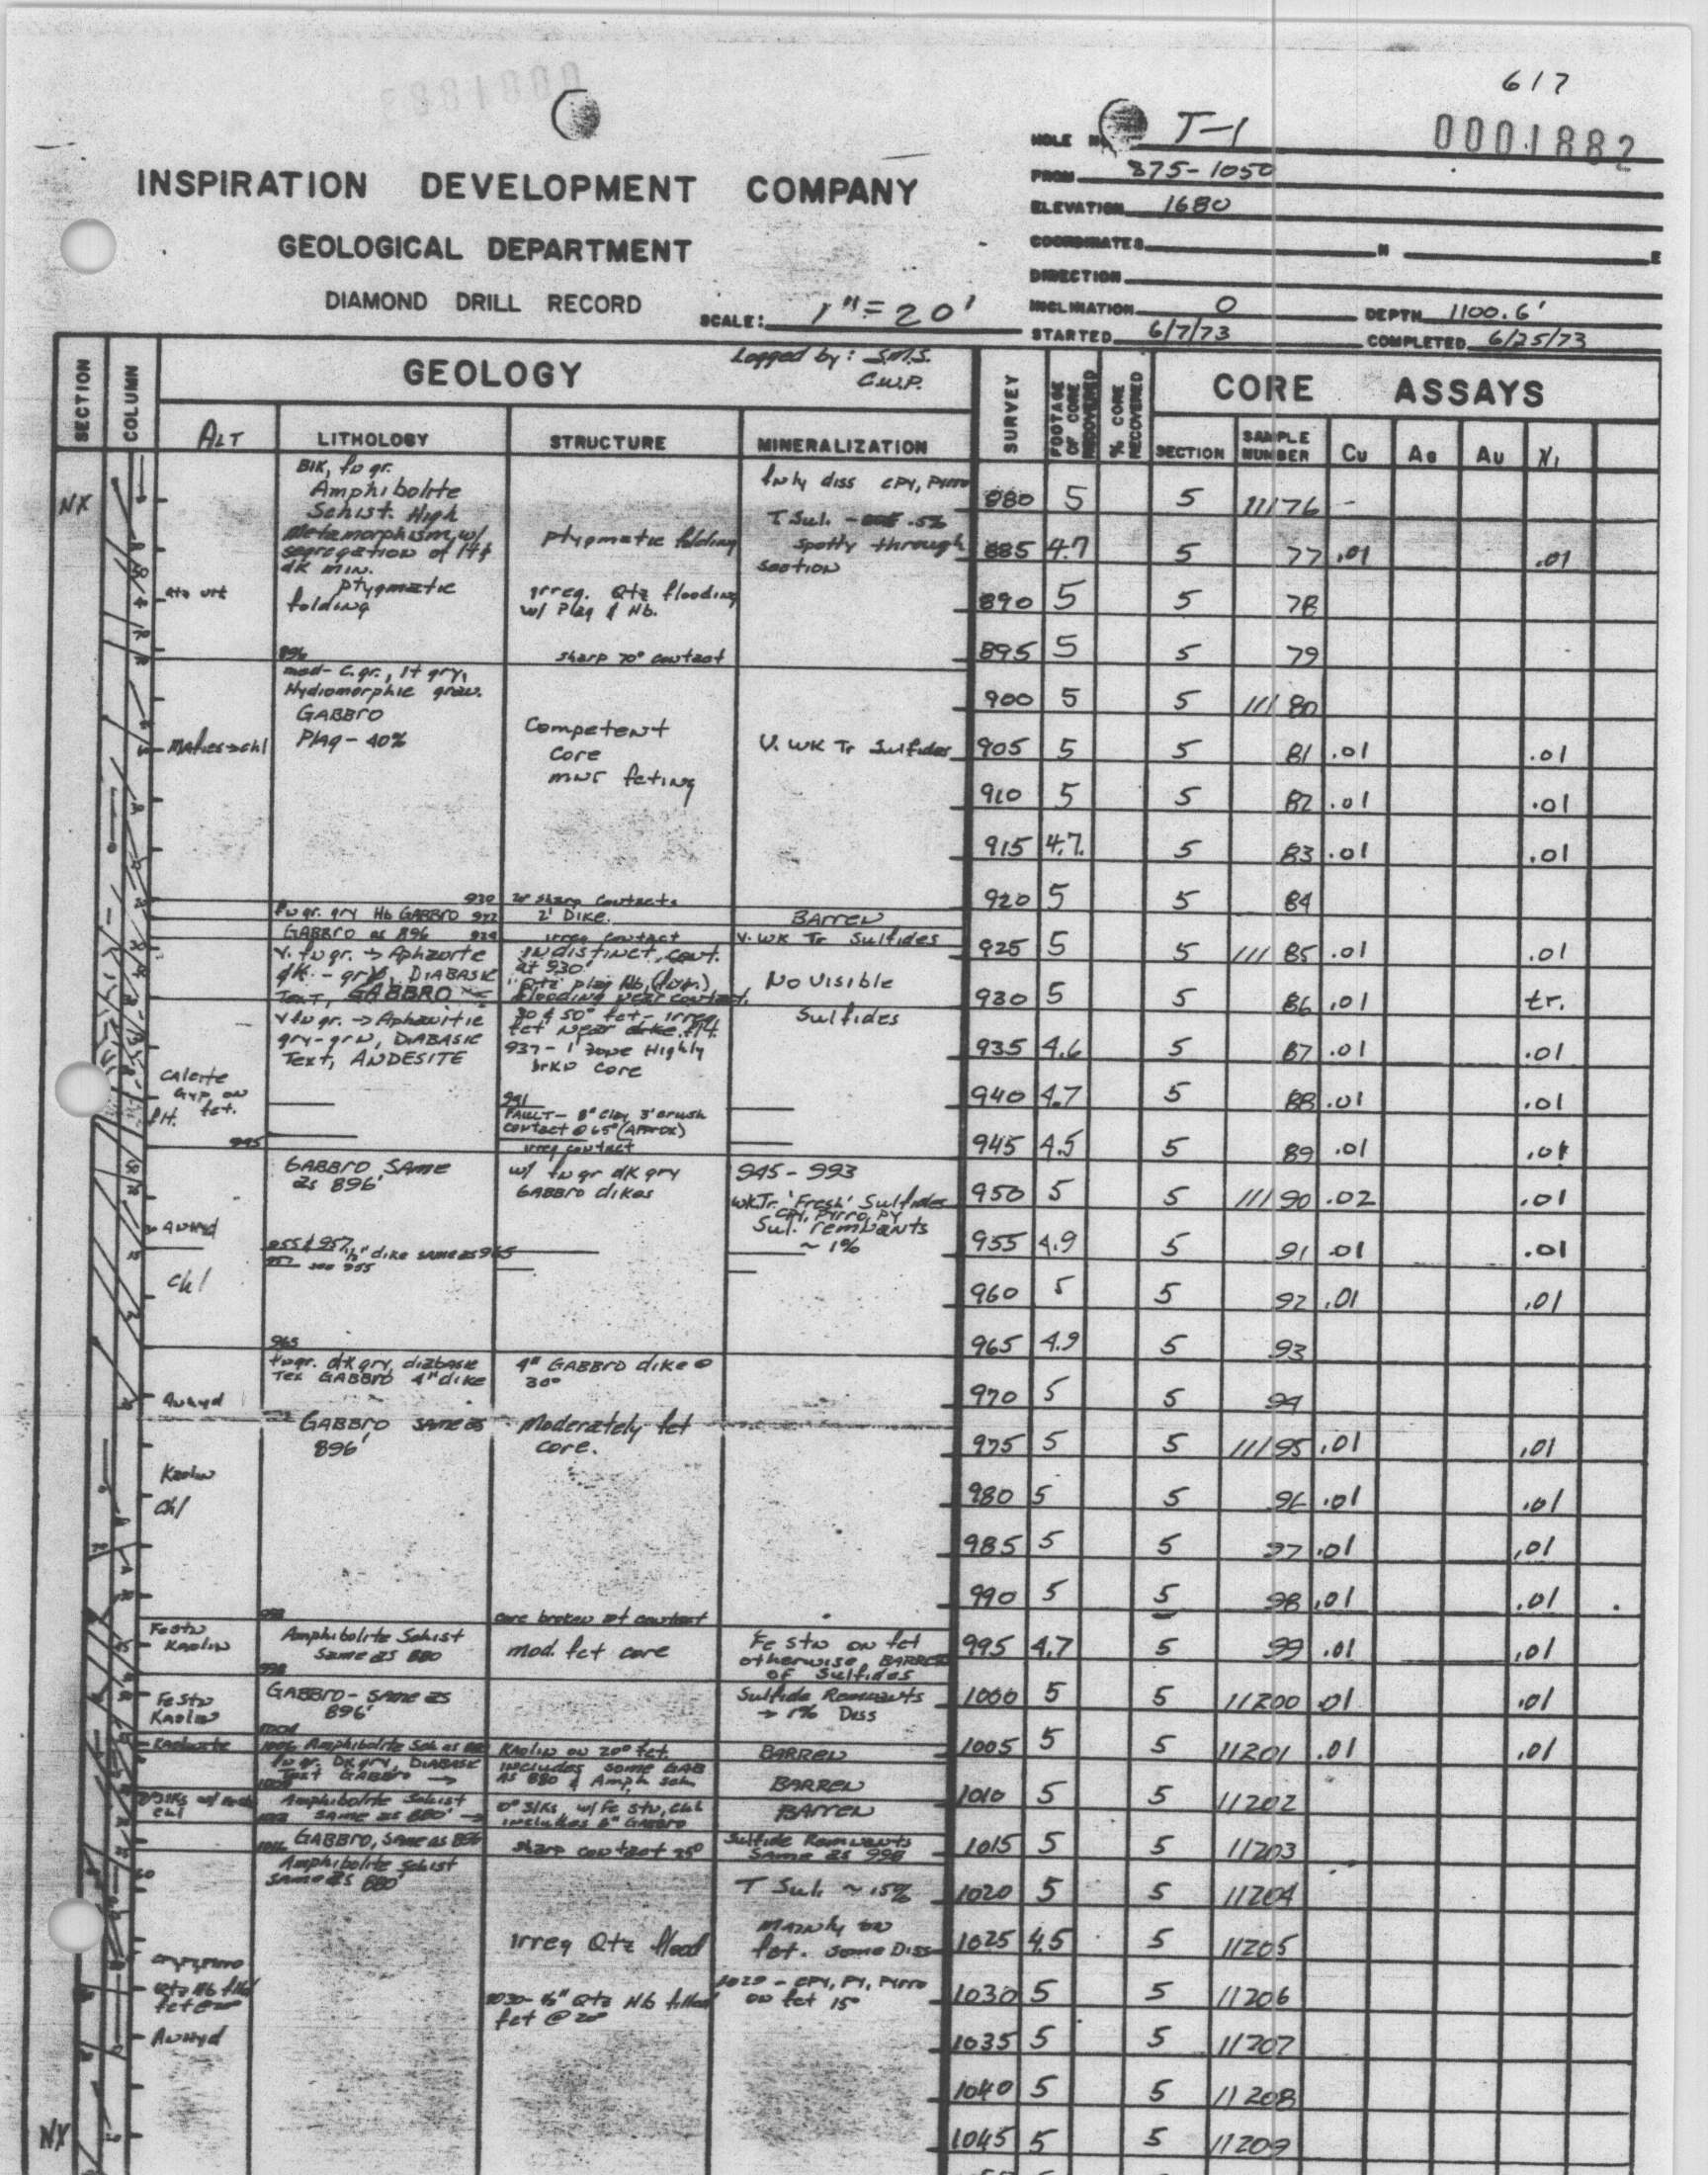 617
HOLE NO. T-1
0001882
FROM 875-1050
ELEVATION 1680
COORDINATES N E
DIRECTION
INCLINATION 0 DEPTH 1100.6'
STARTED 6/7/73 COMPLETED 6/25/73
INSPIRATION DEVELOPMENT COMPANY
GEOLOGICAL DEPARTMENT
DIAMOND DRILL RECORD
SCALE: 1"=20'
SECTION COLUMN GEOLOGY Logged by: S.M.S.
C.W.P.
SURVEY FOOTAGE OF CORE RECOVERED % CORE RECOVERED CORE ASSAYS
ALT LITHOLOGY STRUCTURE MINERALIZATION SECTION SAMPLE NUMBER Cu Ag Au Ni
NX
Blk, fn gr.
Amphibolite
Schist. High
Metamorphism, w/
segregation of lt &
dk min.
Ptygmatic
folding
ptygmatic folding
irreg. Qtz flooding
w/ Plag & Hb.
sharp 70° contact
fnly diss cpy, Pyrro
T Sul. - .5%
spotty through
section
896
med-c.gr., lt gry,
Hydiomorphic gran.
GABBRO
Plag - 40%
Mafics→chl
Competent
core
mnr fcting
V. WK Tr Sulfides
fn gr. gry Hb GABBRO
2' Dike.
BARREN
GABBRO as 896
irreg contact
V. WK Tr Sulfides
v. fn gr. →
dk. - gry, DIABASIC
Text, GABBRO
indistinct, cont.
at 930'
Qtz plag Hb,
flooding near contact.
No Visible
Sulfides
v fn gr. → Aphanitic
gry-grn, DIABASIC
Text, ANDESITE
937- 1' zone Highly
brkn core
Calcite
Gyp on
fct.
941
FAULT- 8" clay, 3' crush
contact @ 65° (Approx)
irreg contact
945
GABBRO SAME
as 896'
w/ fn gr dk gry
GABBRO dikes
945-993
Wk Tr. 'Fresh' Sulfides
cpy, Pyrro, py
Sul. remnants
~ 1%
Anhyd
955 & 957
Chl
965
fn gr. dk gry, diabasic
Tex GABBRO 4" dike
4" GABBRO dike @
30°
Anhyd
GABBRO same as
896'
Moderately fct
core.
Kaolin
Chl
993
core broken at contact
Fe stn
Kaolin
Amphibolite Schist
same as 880
mod. fct core
Fe stn on fct
otherwise, BARREN
of Sulfides
998
Fe stn
Kaolin
GABBRO- same as
896'
Sulfide Remnants
→ 1% Diss
Kaolin on 20° fct.
BARREN
fn gr. Dk gry, DIABASIC
Text GABBRO →
includes some GAB
as 880 & Amph sch.
BARREN
chl
Amphibolite Schist
same as 880' →
0° slks w/ Fe stn, chl
includes 6" GABBRO
BARREN
GABBRO, same as 896
sharp contact 25°
Sulfide Remnants
same as 998
Amphibolite schist
same as 880'
T Sul. ~ .15%
Mainly on
fct. some Diss
Irreg Qtz flood
1029 - cpy, Py, Pyrro
on fct 15°
1030- ½" Qtz Hb filled
fct @ 20°
Anhyd
NX
880 5 5 11176 -
885 4.7 5 77 .01 .01
890 5 5 78
895 5 5 79
900 5 5 11180
905 5 5 81 .01 .01
910 5 5 82 .01 .01
915 4.7 5 83 .01 .01
920 5 5 84
925 5 5 11185 .01 .01
930 5 5 86 .01 tr.
935 4.6 5 87 .01 .01
940 4.7 5 88 .01 .01
945 4.5 5 89 .01 .01
950 5 5 11190 .02 .01
955 4.9 5 91 .01 .01
960 5 5 92 .01 .01
965 4.9 5 93
970 5 5 94
975 5 5 11195 .01 .01
980 5 5 96 .01 .01
985 5 5 97 .01 .01
990 5 5 98 .01 .01
995 4.7 5 99 .01 .01
1000 5 5 11200 .01 .01
1005 5 5 11201 .01 .01
1010 5 5 11202
1015 5 5 11203
1020 5 5 11204
1025 4.5 5 11205
1030 5 5 11206
1035 5 5 11207
1040 5 5 11208
1045 5 5 11209